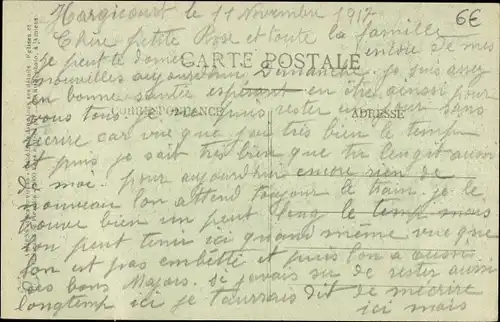 Hargicourt le 11 Novembre 1917
6€
Chère petite Rose et toute la famille
je peut te donner encore de mes
CARTE POSTALE
nouvelles aujourdhui Dimanche. je suis assez
en bonne santée esperant en être aussi pour
vous tous je ne puis rester un jour sans
CORRESPONDANCE
ADRESSE
t'écrire car vue que j'ai très bien le temps
et puis je sait très bien que tu lengit aussi
de moi. pour aujourdhui encore rien de
nouveau l'on attend toujour le train. je le
trouve bien un peut long le temp mais
l'on peut tenir ici quand même vue que
l'on est pas embêtté et puis l'on a aussi
des bons Majors. Se javais su de rester aussi
longtemp ici je t'aurrais dit de m'écrire
ici mais